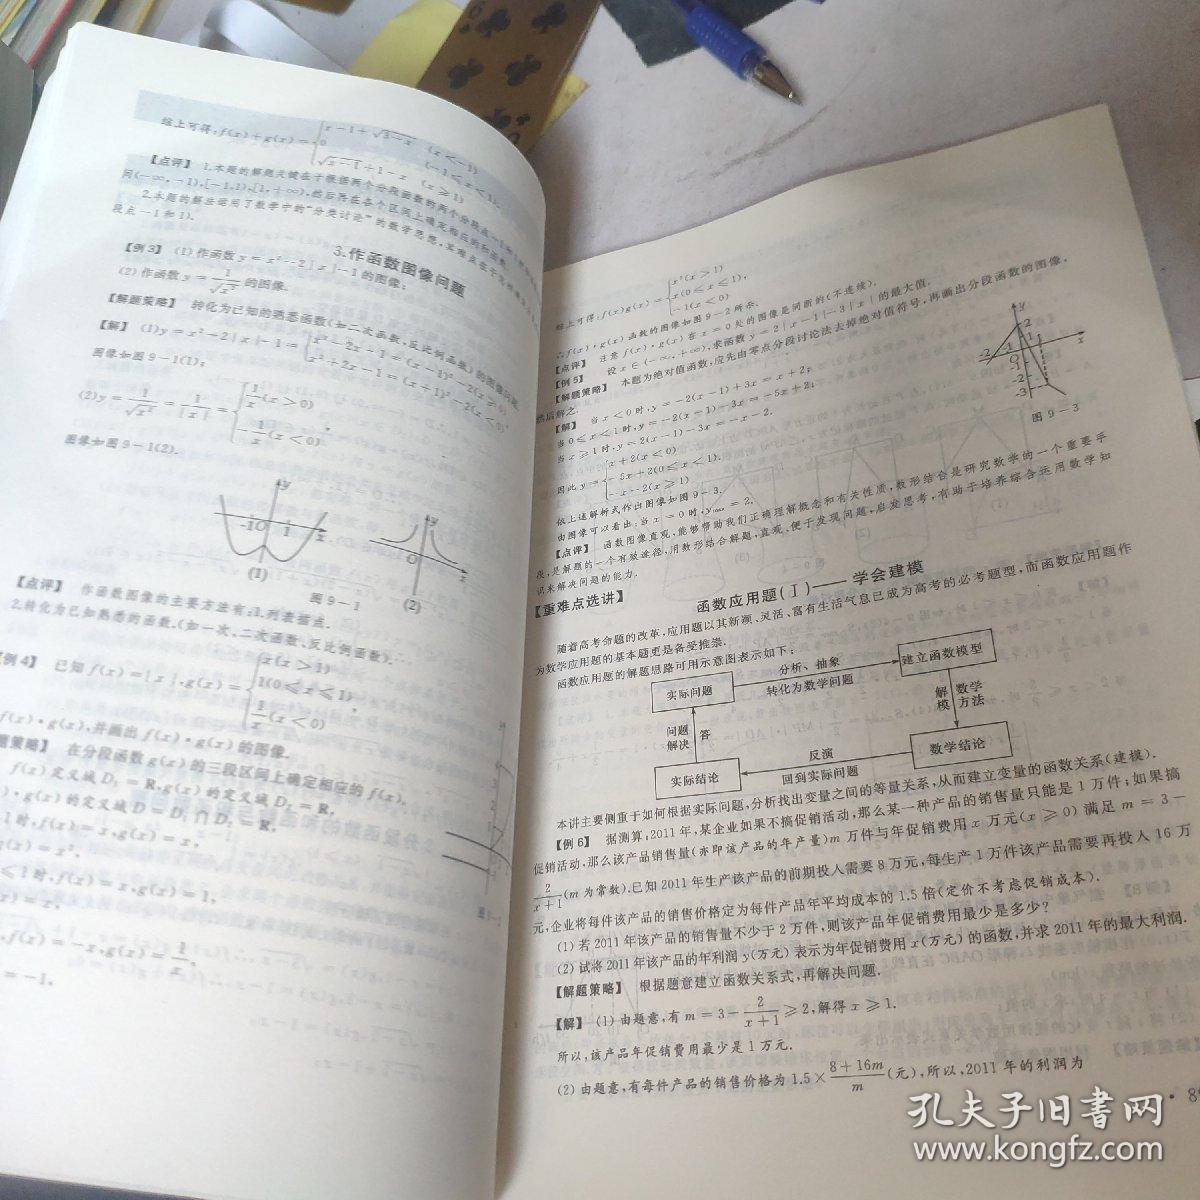 综上可得:f(x)+g(x)=
x-1+√3-x (x<-1)
0 (-1<x<1)
√x-1+1-x (x≥1)
【点评】 1.本题的解题关键在于根据两个分段函数的两个分段点-1和
间(-∞,-1),[-1,1),[1,+∞),然后再在各个区间上确定相应的和函数.
2.本题的解法运用了数学中的“分类讨论”的数学思想,其难点在于
段点-1和1).
3.作函数图像问题
【例3】 (1)作函数y=x²-2|x|-1的图像;
(2)作函数y=1/√x²的图像.
【解题策略】 转化为已知的熟悉函数(如二次函数,反比例函数)的图像问题.
【解】 (1)y=x²-2|x|-1=
x²-2x-1=(x-1)²-2(x≥0)
x²+2x-1=(x+1)²-2(x<0)
图像如图9-1(1);
(2)y=1/√x²=1/|x|=
1/x(x>0)
-1/x(x<0)
图像如图9-1(2).
y
-1 O 1 x
(1)
y
O x
(2)
图9-1
【点评】 作函数图像的主要方法有:1.列表描点.
2.转化为已知熟悉的函数.(如一次、二次函数、反比例函数).
例4】 已知f(x)=|x|,g(x)=
x(x>1)
1(0≤x≤1),
1/x(x<0)
f(x)·g(x),并画出f(x)·g(x)的图像.
题策略】 在分段函数g(x)的三段区间上确定相应的f(x).
f(x)定义域D₁=R,g(x)的定义域D₂=R,
)·g(x)的定义域D=D₁∩D₂=R.
1时,f(x)=x,g(x)=x,
g(x)=x².
≤1时,f(x)=x,g(x)=1,
(x)=x.
,f(x)=-x,g(x)=1/x,
=-1.
综上可得:f(x)g(x)=
x²(x>1)
x(0≤x≤1),
-1(x<0)
∴f(x)·g(x)函数的图像如图9-2所示.
【点评】 注意f(x)·g(x)在x=0处的图像是间断的(不连续).
【例5】 设x∈(-∞,+∞),求函数y=2|x-1|-3|x|的最大值.
【解题策略】 本题为绝对值函数,应先由零点分段讨论法去掉绝对值符号,再画出分段函数的图像,
然后解之.
【解】 当x<0时,y=-2(x-1)+3x=x+2;
当0≤x≤1时,y=-2(x-1)-3x=-5x+2;
当x≥1时,y=2(x-1)-3x=-x-2.
因此y=
x+2(x<0)
-5x+2(0≤x<1).
-x-2(x≥1)
依上述解析式作出图像如图9-3.
由图像可以看出:当x=0时,ymax=2.
y
2
1
-2 -1 O 1 x
-1
-2
-3
图9-3
【点评】 函数图像直观,能够帮助我们正确理解概念和有关性质,数形结合是研究数学的一个重要手
段,是解题的一个有效途径,用数形结合解题,直观、便于发现问题,启发思考,有助于培养综合运用数学知
识来解决问题的能力.
【重难点选讲】
函数应用题(Ⅰ)——学会建模
随着高考命题的改革,应用题以其新颖、灵活、富有生活气息已成为高考的必考题型,而函数应用题作
为数学应用题的基本题更是备受推崇.
函数应用题的解题思路可用示意图表示如下:
实际问题
分析、抽象
转化为数学问题
建立函数模型
解模
数学方法
数学结论
反演
回到实际问题
实际结论
问题解决
答
本讲主要侧重于如何根据实际问题,分析找出变量之间的等量关系,从而建立变量的函数关系(建模).
【例6】 据测算:2011年,某企业如果不搞促销活动,那么某一种产品的销售量只能是1万件;如果搞
促销活动,那么该产品销售量(亦即该产品的年产量)m万件与年促销费用x万元(x≥0)满足m=3-
2/x+1(m为常数).已知2011年生产该产品的前期投入需要8万元,每生产1万件该产品需要再投入16万
元,企业将每件该产品的销售价格定为每件产品年平均成本的1.5倍(定价不考虑促销成本).
(1)若2011年该产品的销售量不少于2万件,则该产品年促销费用最少是多少?
(2)试将2011年该产品的年利润y(万元)表示为年促销费用x(万元)的函数,并求2011年的最大利润.
【解题策略】 根据题意建立函数关系式,再解决问题.
【解】 (1)由题意,有m=3-2/x+1≥2,解得x≥1.
所以,该产品年促销费用最少是1万元.
(2)由题意,有每件产品的销售价格为1.5×8+16m/m(元),所以,2011年的利润为
孔夫子旧书网
www.kongfz.com